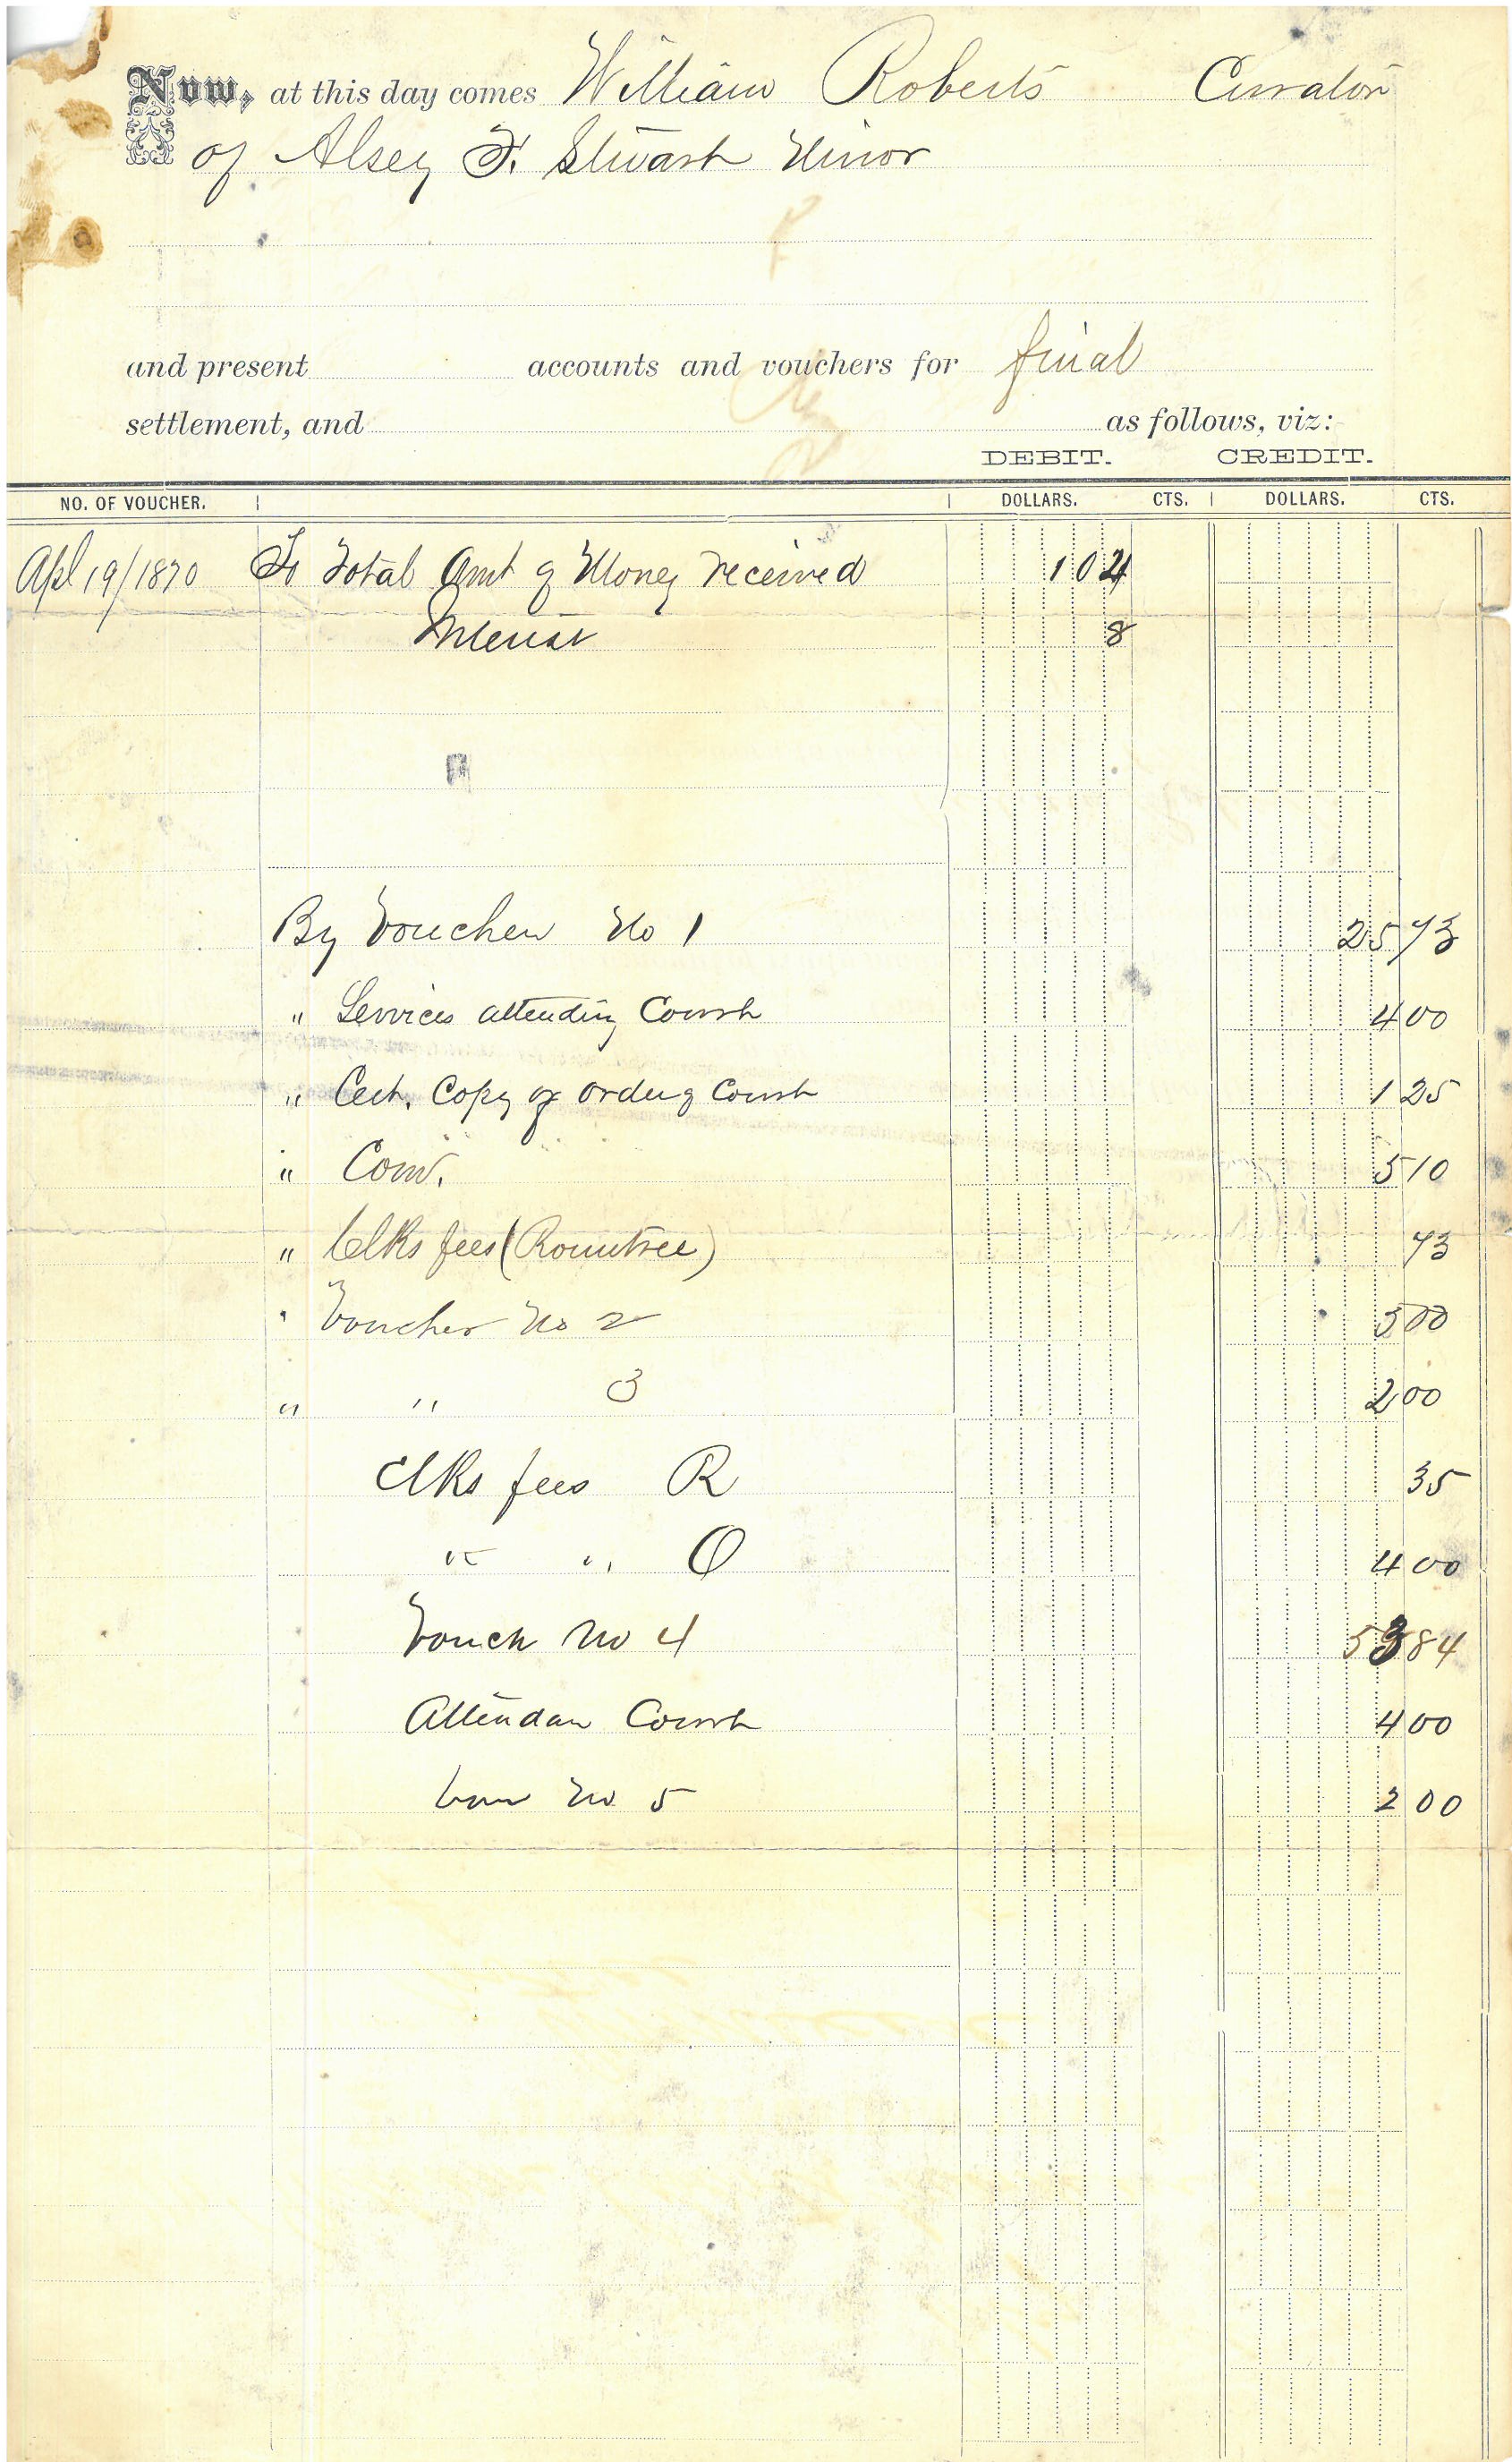 Now, at this day comes William Roberts Curator
of Alsey F. Stuart Minor
and present accounts and vouchers for final
settlement, and as follows, viz:
DEBIT. CREDIT.
NO. OF VOUCHER. DOLLARS. CTS. DOLLARS. CTS.
Apl 19/1870 To Total Amt of Money received 104
Interest 8
By Voucher No 1 25 73
" Services attending Court 4 00
" Cert. Copy of order of Court 1 25
" Com. 5 10
" Clks fees (Rountree) 73
" Voucher No 2 5 00
" " 3 2 00
Clks fees R 35
" " O 4 00
Vouch No 4 53 84
Attendan Court 4 00
Vou No 5 2 00